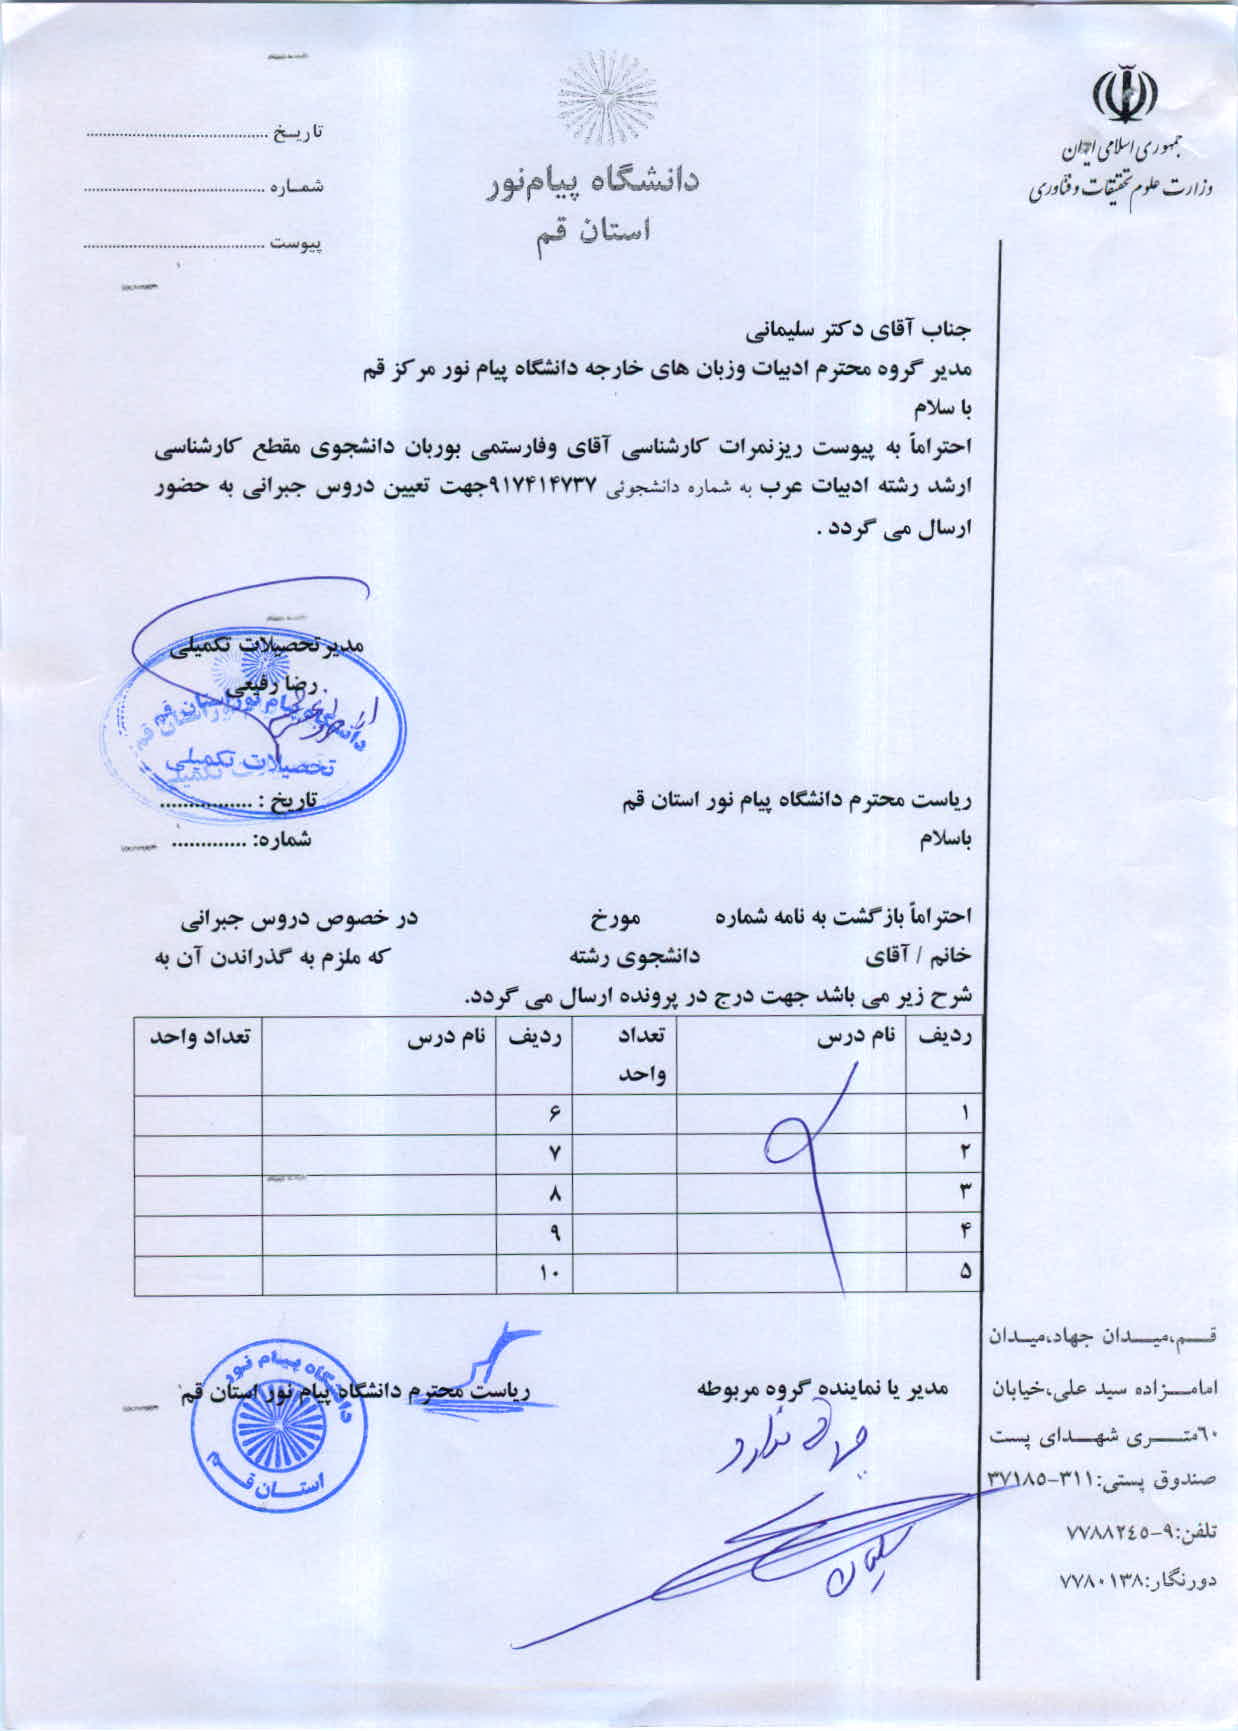 جمهوری اسلامی ایران
وزارت علوم تحقیقات و فناوری
دانشگاه پیام‌نور
استان قم
تاریـخ ......................................
شمـاره ......................................
پیوست ......................................
جناب آقای دکتر سلیمانی
مدیر گروه محترم ادبیات وزبان های خارجه دانشگاه پیام نور مرکز قم
با سلام
احتراماً به پیوست ریزنمرات کارشناسی آقای وفارستمی بوربان دانشجوی مقطع کارشناسی
ارشد رشته ادبیات عرب به شماره دانشجوئی ۹۱۷۴۱۴۷۳۷جهت تعیین دروس جبرانی به حضور
ارسال می گردد .
مدیر تحصیلات تکمیلی
رضا رفیعی
دانشگاه پیام نور استان قم
تحصیلات تکمیلی
ریاست محترم دانشگاه پیام نور استان قم
تاریخ : ................
باسلام
شماره: .............
احتراماً بازگشت به نامه شماره مورخ در خصوص دروس جبرانی
خانم / آقای دانشجوی رشته که ملزم به گذراندن آن به
شرح زیر می باشد جهت درج در پرونده ارسال می گردد.
ردیف نام درس تعداد واحد ردیف نام درس تعداد واحد
۱ ۶
۲ ۷
۳ ۸
۴ ۹
۵ ۱۰
مدیر یا نماینده گروه مربوطه
ریاست محترم دانشگاه پیام نور استان قم
دانشگاه پیام نور
استـان قـم
سلیمانی
قـــم،میـــدان جهاد،میـدان
امامـــزاده سید علی،خیابان
٦۰متـــری شهـــدای پست
صندوق پستی:۳۱۱-۳۷۱۸۵
تلفن:۹-۷۷۸۸۲٤٥
دورنگار:۷۷۸۰۱۳۸